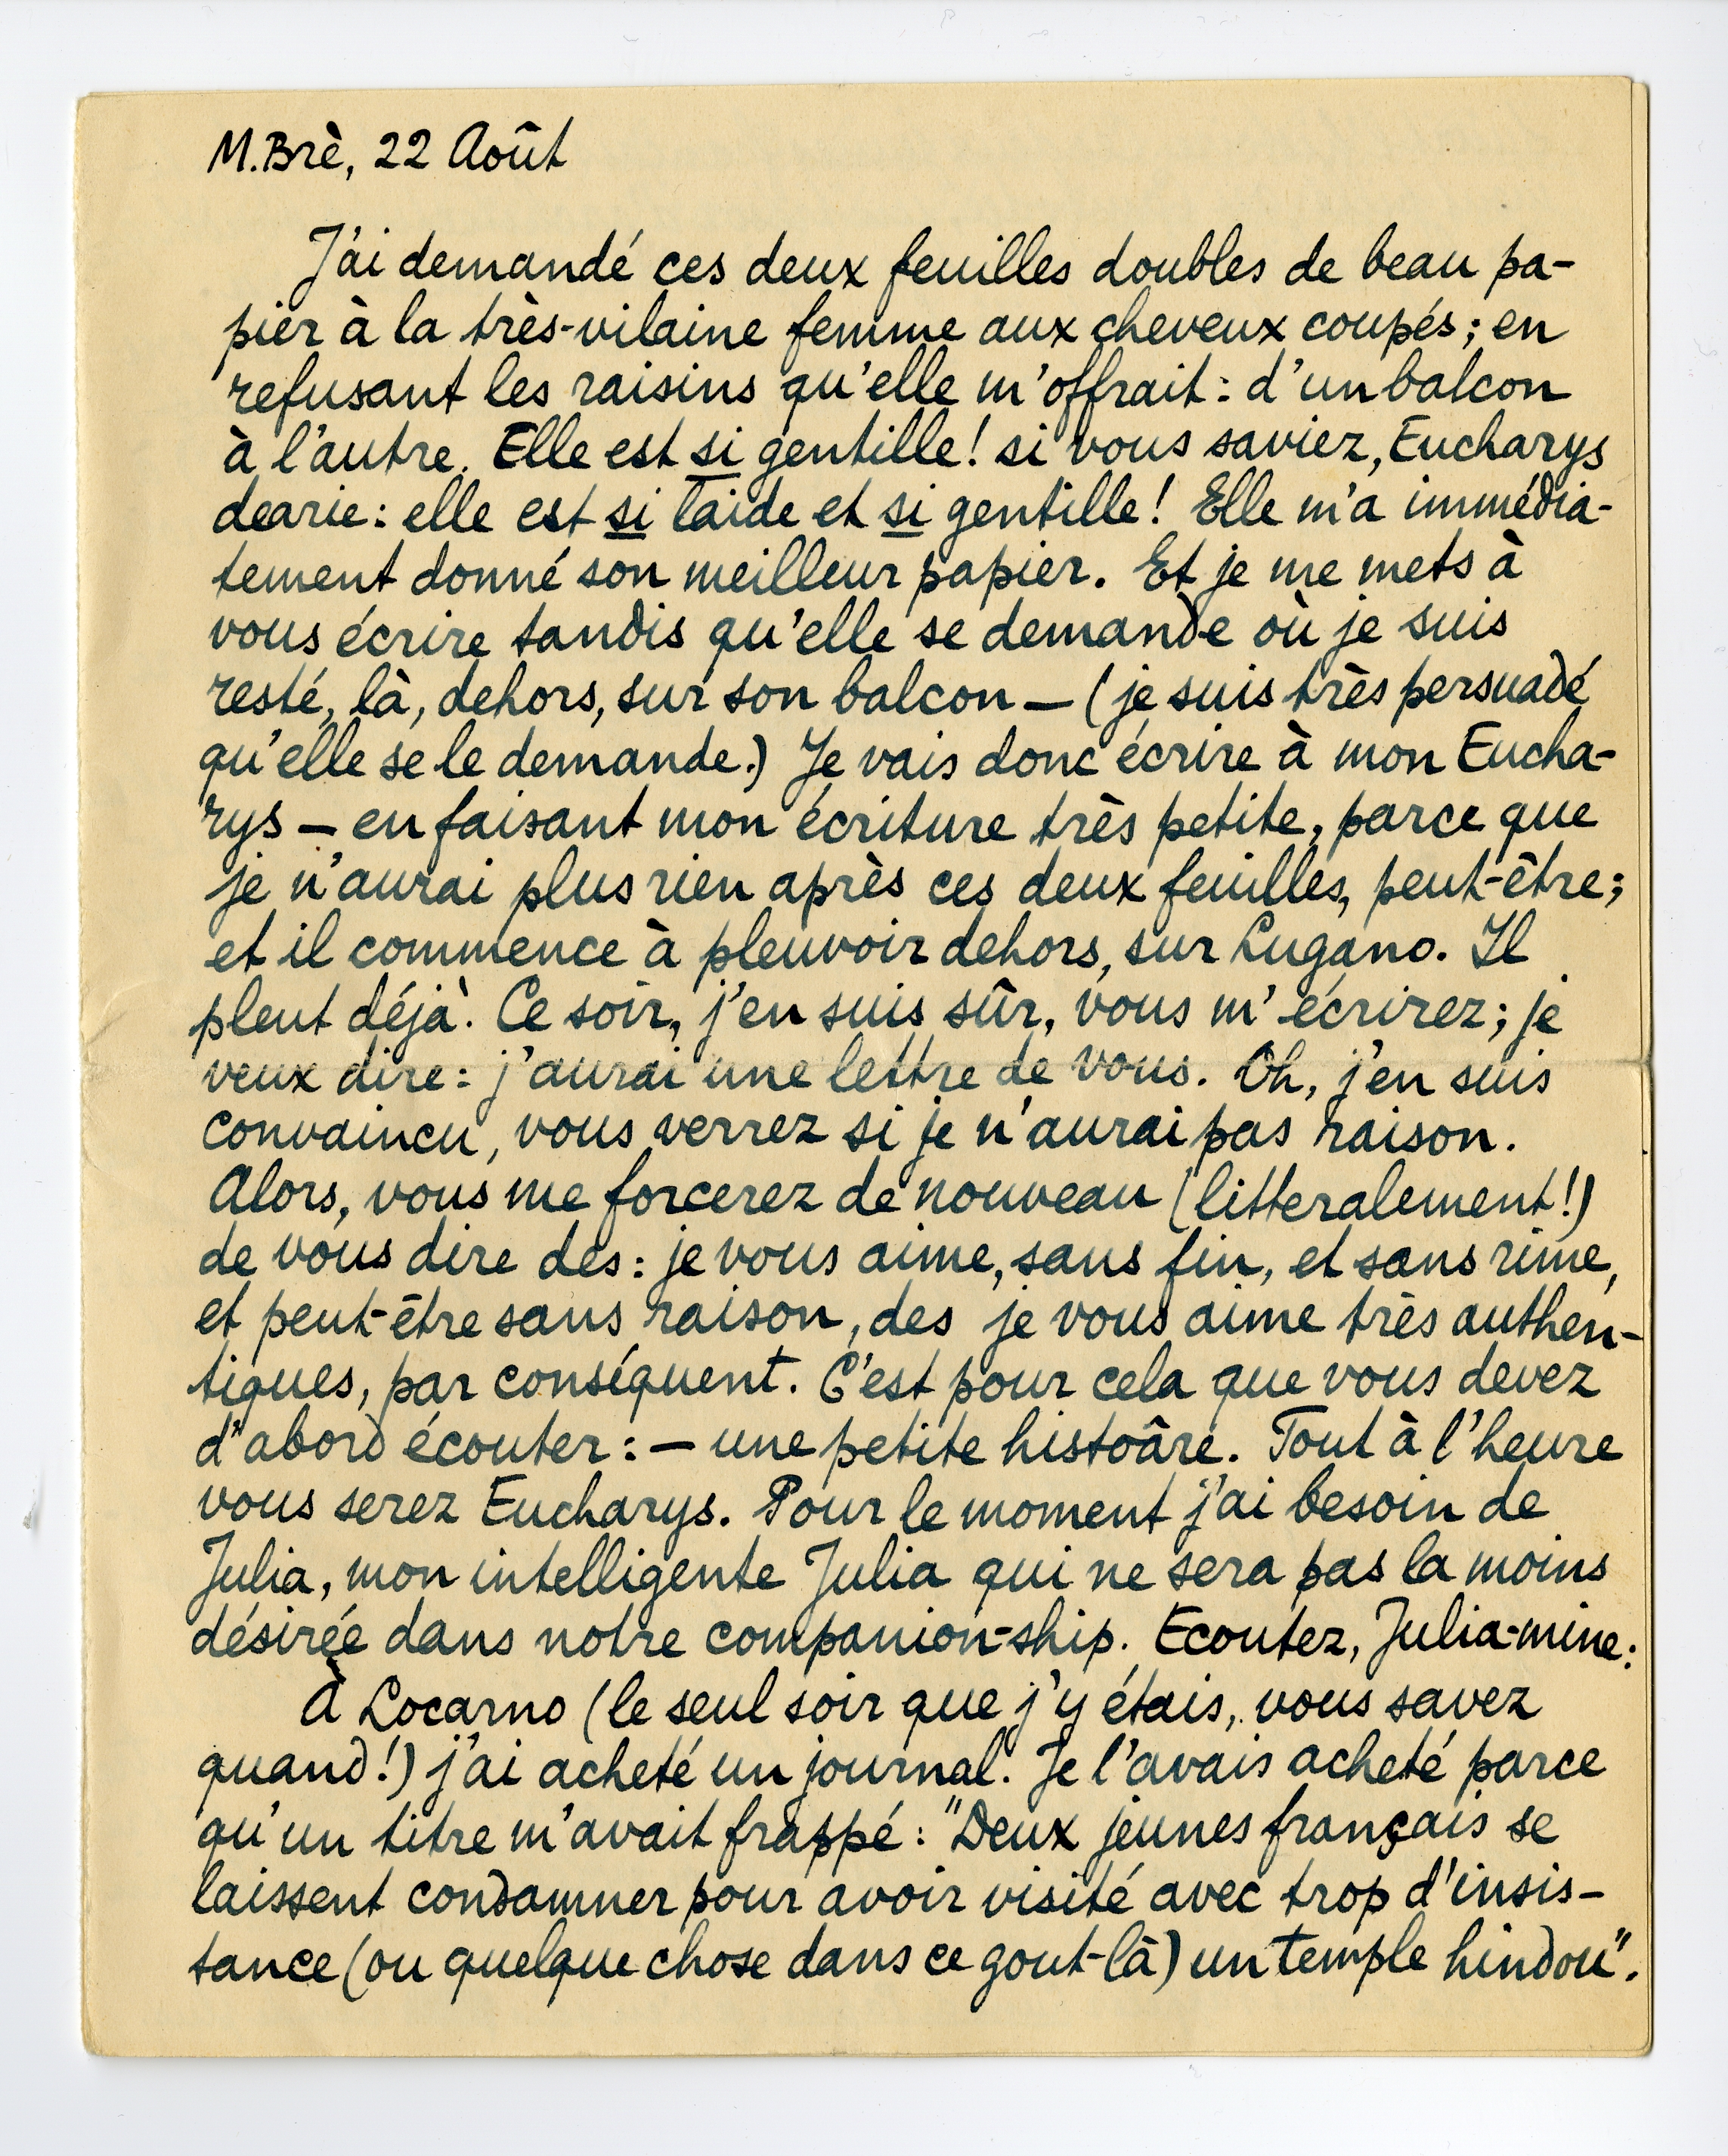 M. Brè, 22 Août
J'ai demandé ces deux feuilles doubles de beau pa-
pier à la très-vilaine femme aux cheveux coupés; en
refusant les raisins qu'elle m'offrait: d'un balcon
à l'autre. Elle est si gentille! si vous saviez, Eucharys
dearie: elle est si laide et si gentille! Elle m'a immédia-
tement donné son meilleur papier. Et je me mets à
vous écrire tandis qu'elle se demande où je suis
resté, là, dehors, sur son balcon — (je suis très persuadé
qu'elle se le demande.) Je vais donc écrire à mon Eucha-
rys — en faisant mon écriture très petite, parce que
je n'aurai plus rien après ces deux feuilles, peut-être;
et il commence à pleuvoir dehors, sur Lugano. Il
pleut déjà. Ce soir, j'en suis sûr, vous m'écrirez; je
veux dire: j'aurai une lettre de vous. Oh, j'en suis
convaincu, vous verrez si je n'aurai pas raison.
Alors, vous me forcerez de nouveau (litteralement!)
de vous dire des: je vous aime, sans fin, et sans rime,
et peut-être sans raison, des je vous aime très authen-
tiques, par conséquent. C'est pour cela que vous devez
d'abord écouter: — une petite histoâre. Tout à l'heure
vous serez Eucharys. Pour le moment j'ai besoin de
Julia, mon intelligente Julia qui ne sera pas la moins
désirée dans notre companion-ship. Ecoutez, Julia-mine:
À Locarno (le seul soir que j'y étais, vous savez
quand!) j'ai acheté un journal. Je l'avais acheté parce
qu'un titre m'avait frappé: "Deux jeunes français se
laissent condamner pour avoir visité avec trop d'insis-
tance (ou quelque chose dans ce gout-là) un temple hindou".